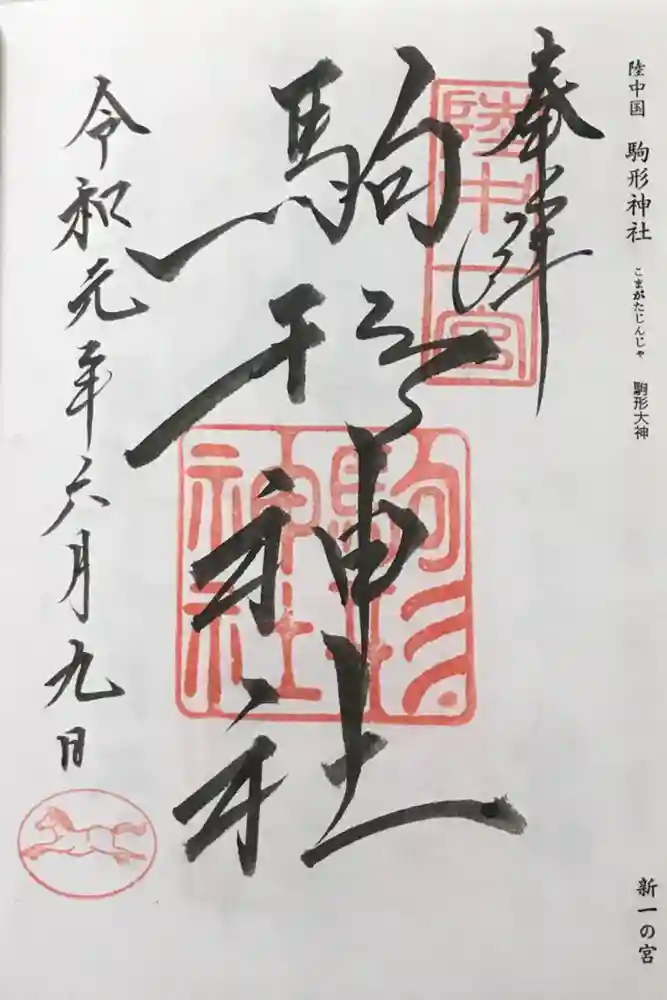 陸中国 駒形神社 こまがたじんじゃ 駒形大神
新一の宮
奉拝
陸中一宮
駒形神社
駒形神社
令和元年六月九日